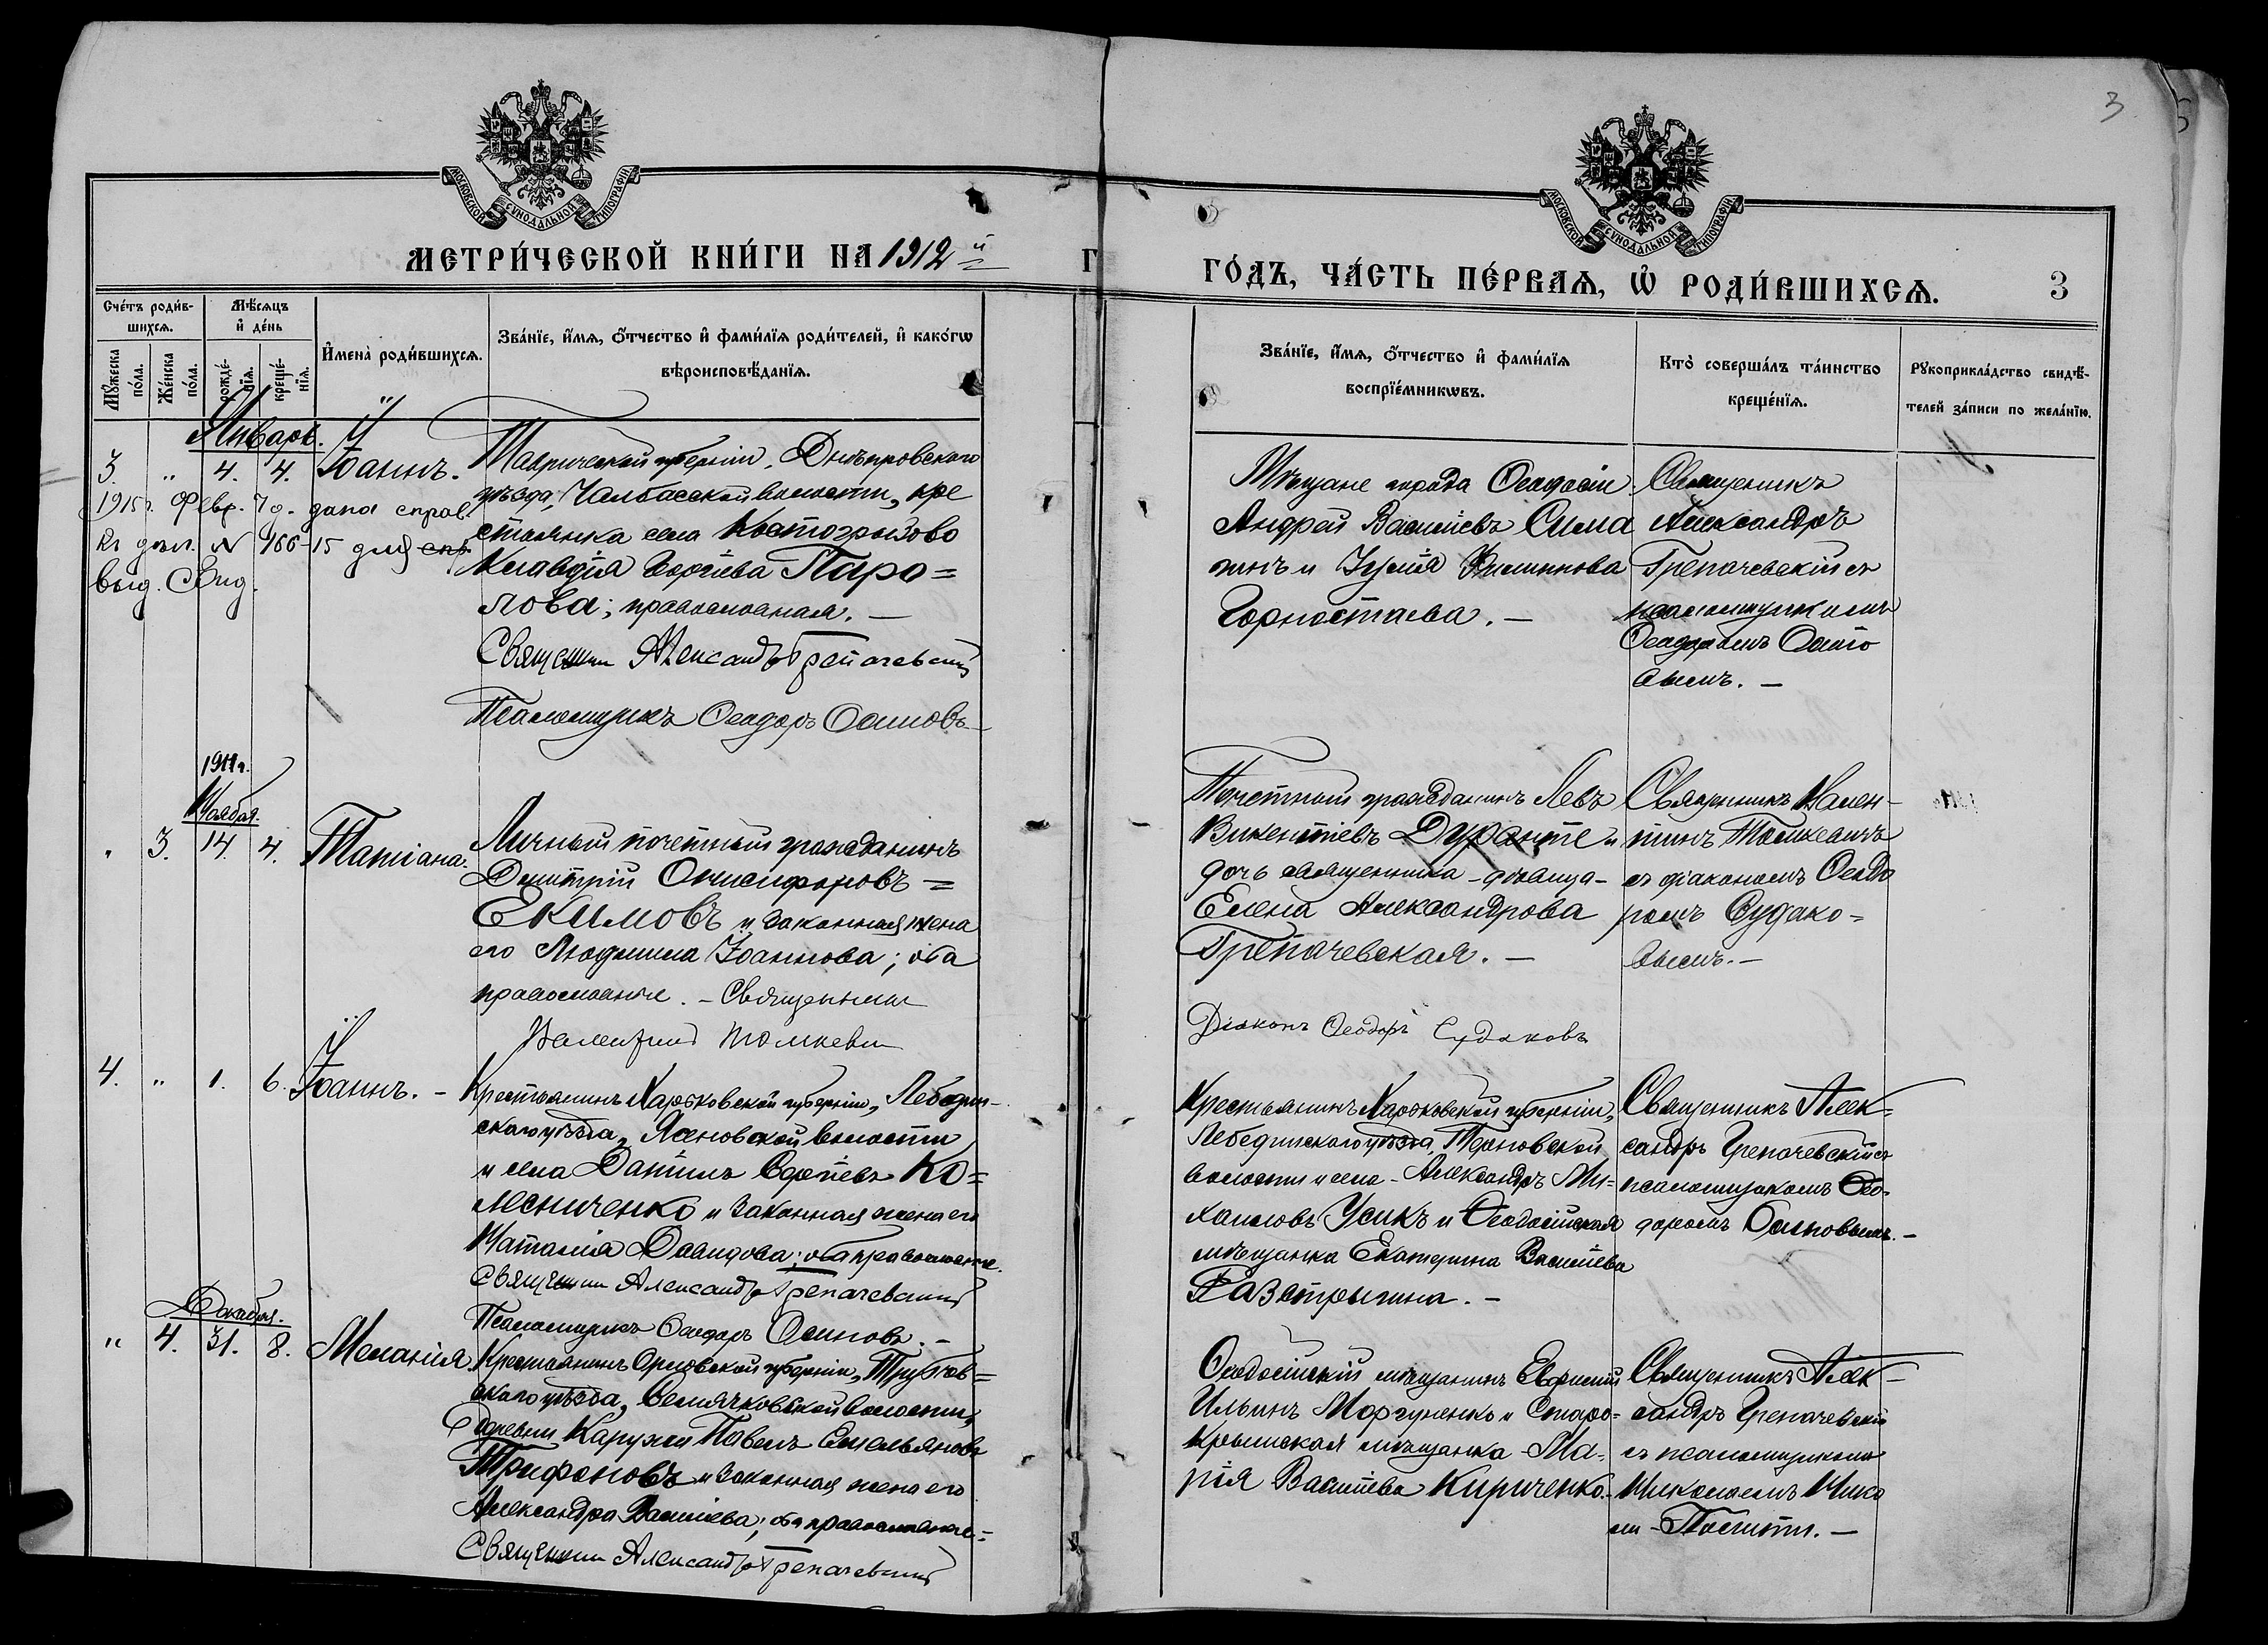 3
МОСКОВСКОЙ СУНОДАЛЬНОЙ ТИПОГРАФІИ
МОСКОВСКОЙ СУНОДАЛЬНОЙ ТИПОГРАФІИ
МЕТРИ́ЧЕСКОЙ КНИ́ГИ НА 1912 й
Г
ГО́ДЪ, ЧА́СТЬ ПЕ́РВАѦ, Ѡ҆ РОДИ́ВШИХСѦ. 3
Сче́тъ роди́в-
шихсѧ.
Мꙋ́жеска по́ла.
Же́нска по́ла.
Мѣ́сѧцъ
и҆ де́нь
рожде́-
нїѧ.
креще́-
нїѧ.
И҆мена̀ роди́вшихсѧ.
Зва́нїе, и҆́мѧ, ѻ҆́тчество и҆ фами́лїѧ роди́телей, и҆ како́гѡ
вѣроисповѣ́данїѧ.
Зва́нїе, и҆́мѧ, ѻ҆́тчество и҆ фами́лїѧ
воспрїе́мникѡвъ.
Кто̀ соверша́лъ та́инство
креще́нїѧ.
Рꙋкоприкла́дство свидѣ́-
телей за́писи по жела́нїю.
Январь.
3. " 4. 4. Іоаннъ.
1915 г. Февр. 7 д. дана справ.
къ дѣл. № 166-15 для спр
выд. Свид.
Таврической губерніи, Днѣпровского
уѣзда, Чалбасской волости, кре
стьянка села Костогрызово
Клавдія Георгіева Паро=
лова; православная. —
Священник Александръ Грепачевский
Псаломщикъ Ѳеодоръ Осиповъ
Мѣщане города Ѳеодосіи
Андрей Васильевъ Сима
нинъ и Іулія Филиппова
Горностаева. —
Священникъ
Александръ
Грепачевскій съ
псаломщикомъ
Ѳеодоромъ Осипо
вымъ. —
1911 г.
Ноября.
" 3. 14. 4. Татіана.
Личный почетный гражданинъ
Димитрій Онисифоровъ =
Екимовъ и законная жена
его Людмила Іоаннова; оба
православные. — Священник
Валентин Томкевич
Почетный гражданинъ Левъ
Викентіевъ Дуранте и
дочь священника - дѣвица -
Елена Александрова
Грепачевская. —
Діаконъ Ѳеодоръ Судаковъ
Священникъ Вален-
тинъ Томкевичъ
съ діакономъ Ѳеодо
ромъ Судако=
вымъ. —
4. " 1. 6. Іоаннъ. -
Крестьянинъ Харьковской губерніи, Лебедин-
скаго уѣзда, Ясеновской волости
и села Даніилъ Сергіевъ Ко=
лесниченко и законная жена его
Наталія Давидова; оба православные.
Священник Александръ Грепачевский
Псаломщикъ Ѳеодоръ Осиповъ. -
Крестьянинъ Харьковской губерніи,
Лебединскаго уѣзда, Терновской
волости и села - Александръ Ми=
хаиловъ Усикъ и Ѳеодосійская
мѣщанка Екатерина Васильева
Газетрыгина. —
Священникъ Алек=
сандръ Грепачевскій съ
псаломщикомъ Ѳео-
доромъ Осиповымъ. —
Декабря.
" 4. 31. 8. Меланія
Крестьянинъ Орловской губерніи, Трубчев=
скаго уѣзда, Селячковской волости,
деревни Каружи Павелъ Емельяновъ
Трифоновъ и законная жена его
Александра Васильева; оба православные=
Священник Александръ Грепачевский
Ѳеодосійскій мѣщанинъ Евфимій
Ильинъ Моргуненко и Старо-
Крымская мѣщанка - Ма-
рія Васильева Кириченко.
Священникъ Алек-
сандръ Грепачевскій
съ псаломщикомъ
Николаемъ Нико